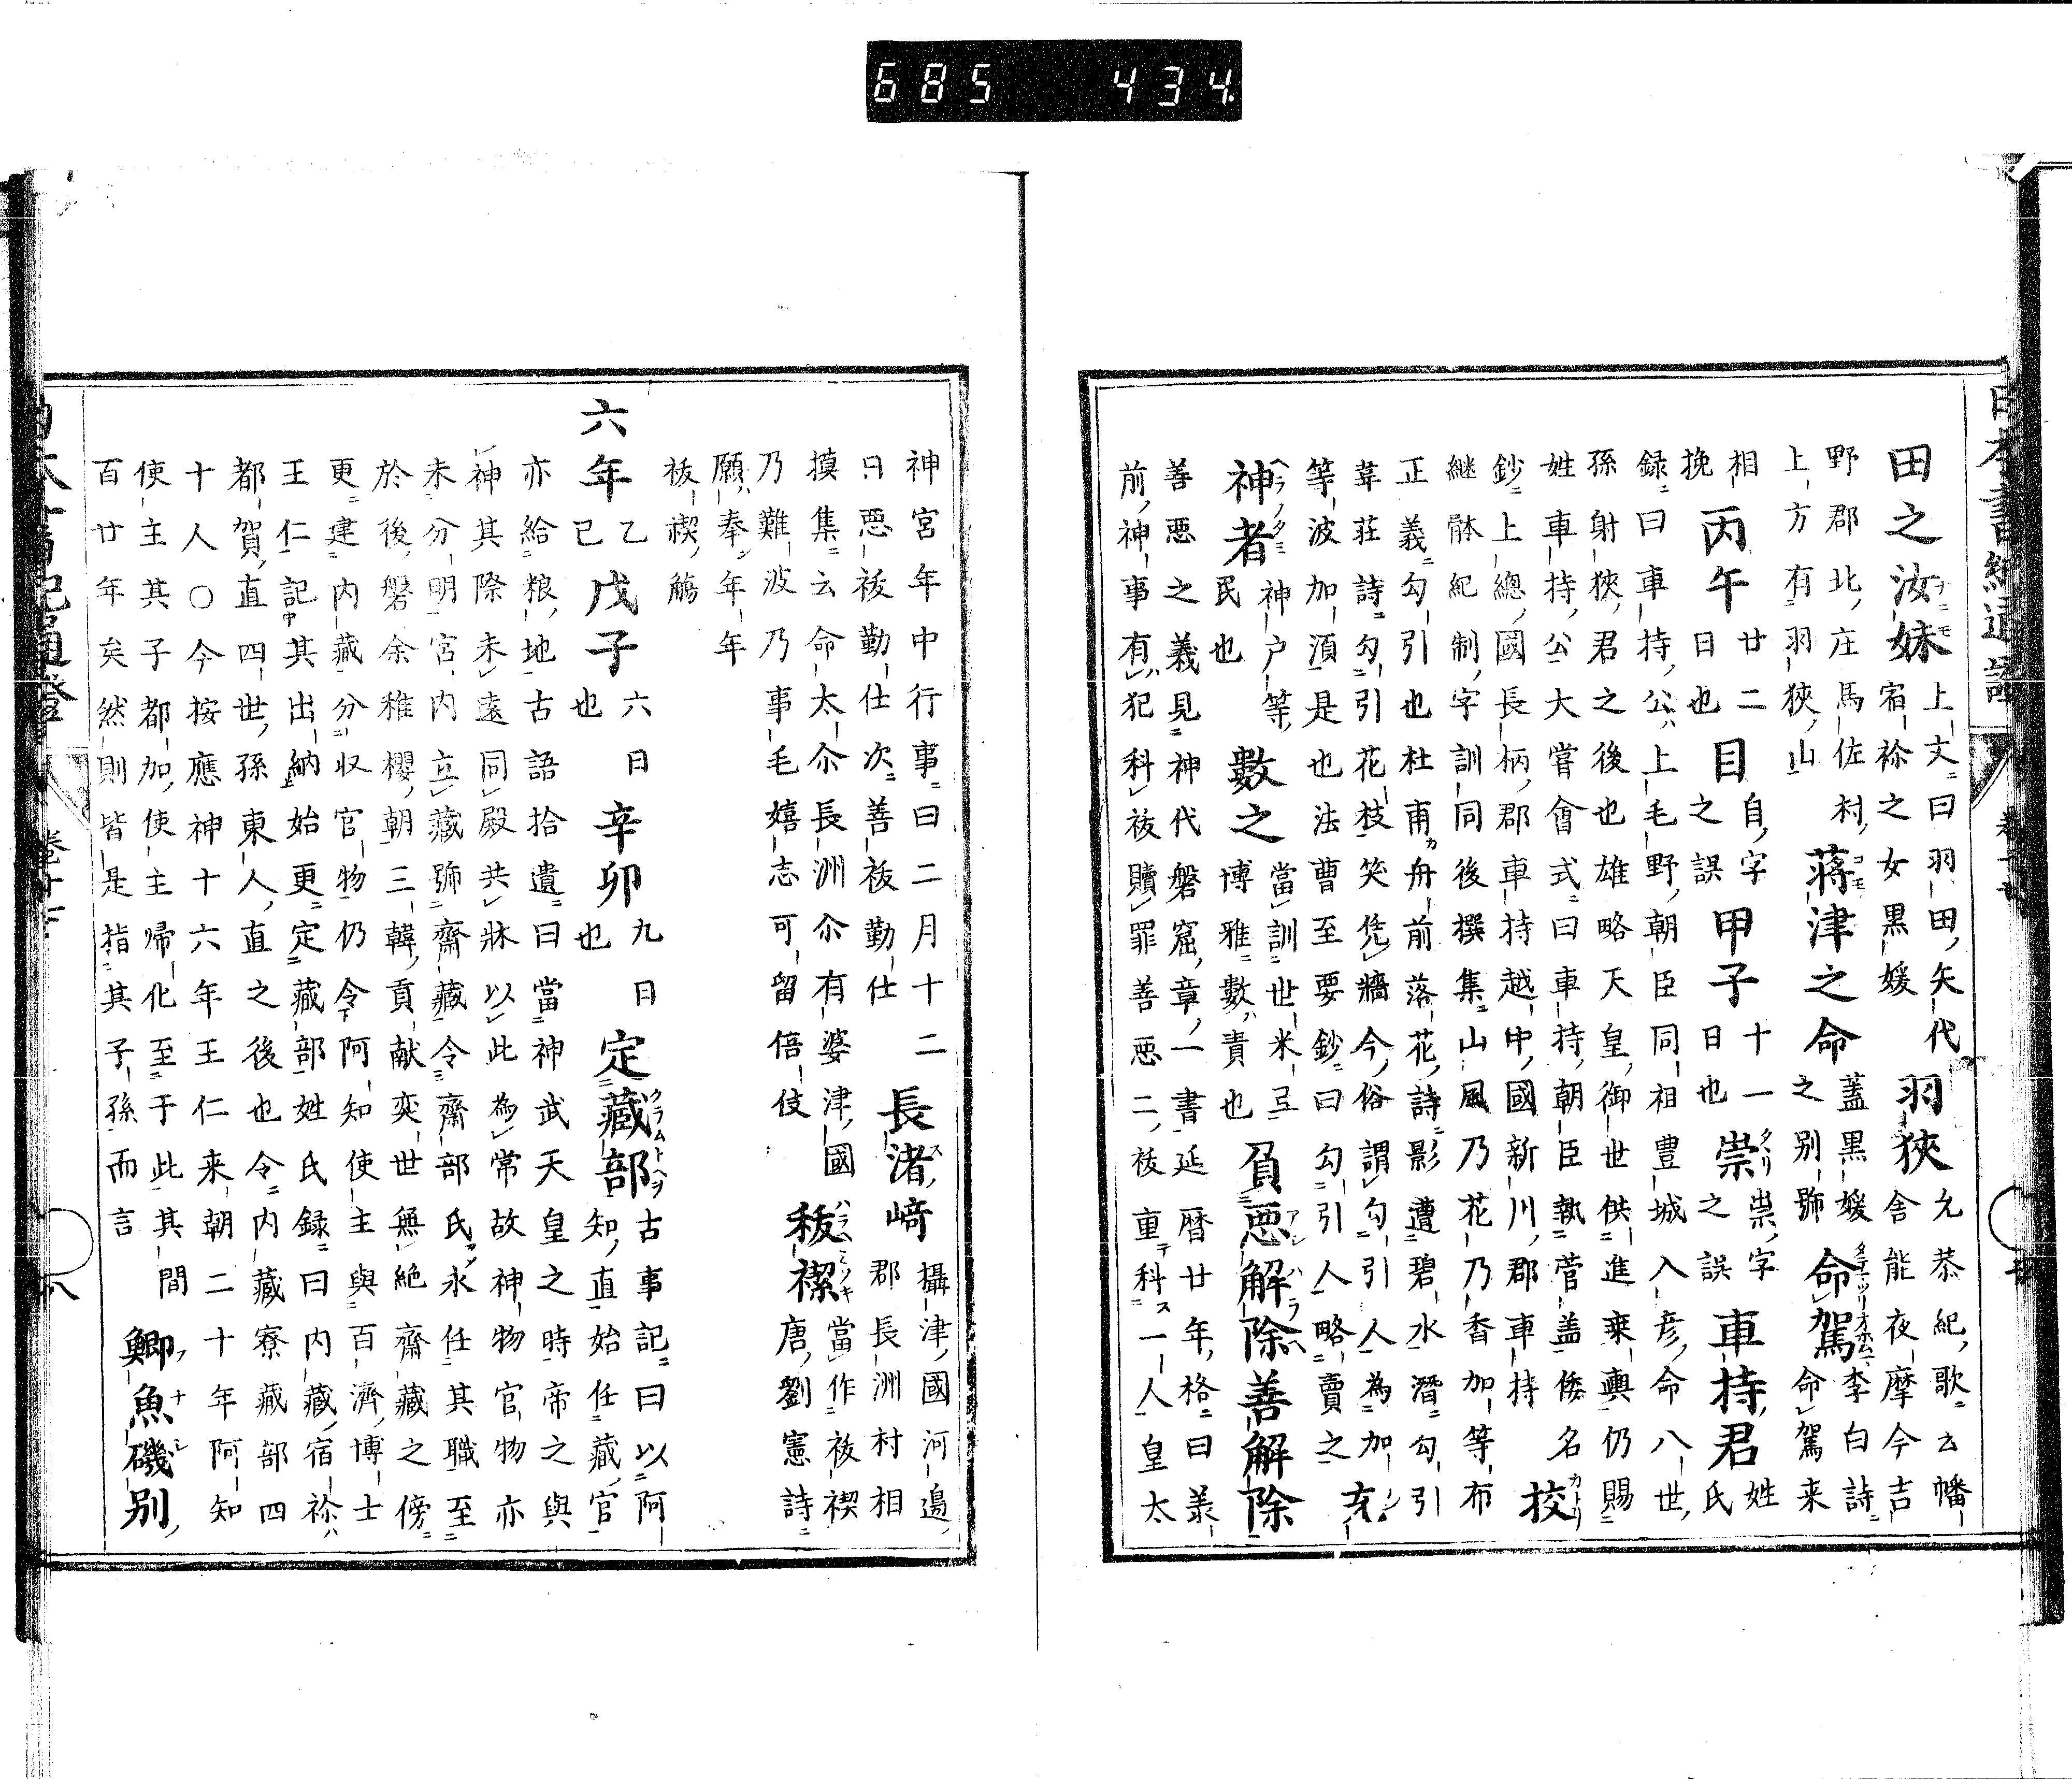 685 434
田之汝妹
上文曰羽田矢代
宿祢之女黒媛
羽狹
允恭紀歌云幡
舎能夜摩今吉
野郡北庄馬佐村
上方有羽狹山
蒋津之命
蓋黒媛
之别號
命駕
李白詩
命駕来
相
挽
丙午
廿二
日也
目
自字
之誤
甲子
十一
日也
崇
祟字
之誤
車持君
姓
氏
録曰車持公上毛野朝臣同祖豊城入彦命八世
孫射狹君之後也雄略天皇御世供進乗輿仍賜
姓車持公大嘗會式曰車持朝臣執菅盖倭名
鈔上總國長柄郡車持越中國新川郡車持
挍
継躰紀制字訓同後撰集山風乃花乃香加等布
正義勾引也杜甫舟前落花詩影遭碧水潛勾引
韋荘詩勾引花枝笑凭牆今俗謂勾引人為加
等波加湏是也法曹至要鈔曰勾引人略賣之
充
神者
神户等
民也
數之
當訓世米弖
博雅數責也
負悪解除善解除
善悪之義見神代磐窟章一書延暦廿年格曰羕
前神事有犯科祓贖罪善悪二祓重科一人皇太
神宮年中行事曰二月十二
日悪祓勤仕次善祓勤仕
長渚﨑
攝津國河邉
郡長洲村相
摸集云命太尒長洲尒有婆津國
乃難波乃事毛嬉志可留倍伎
秡禊
當作祓禊
唐劉憲詩
願奉年年
祓禊觴
六年
乙
巳
戊子
六日
也
辛卯
九日
也
定藏部
古事記曰以阿
知直始任藏官
亦給粮地古語拾遺曰當神武天皇之時帝之與
神其際未遠同殿共牀以此為常故神物官物亦
未分明宮内立藏號齋藏令齋部氏永任其職至
於後磐余稚櫻朝三韓貢献奕世無絶齋藏之傍
更建内藏分収官物仍令阿知使主與百濟博士
王仁記其出納始更定藏部姓氏録曰内藏宿祢
都賀直四世孫東人直之後也令内藏寮藏部四
十人〇今按應神十六年王仁来朝二十年阿知
使主其子都加使主帰化至于此其間
百廿年矣然則皆是指其子孫而言
鯽魚磯别